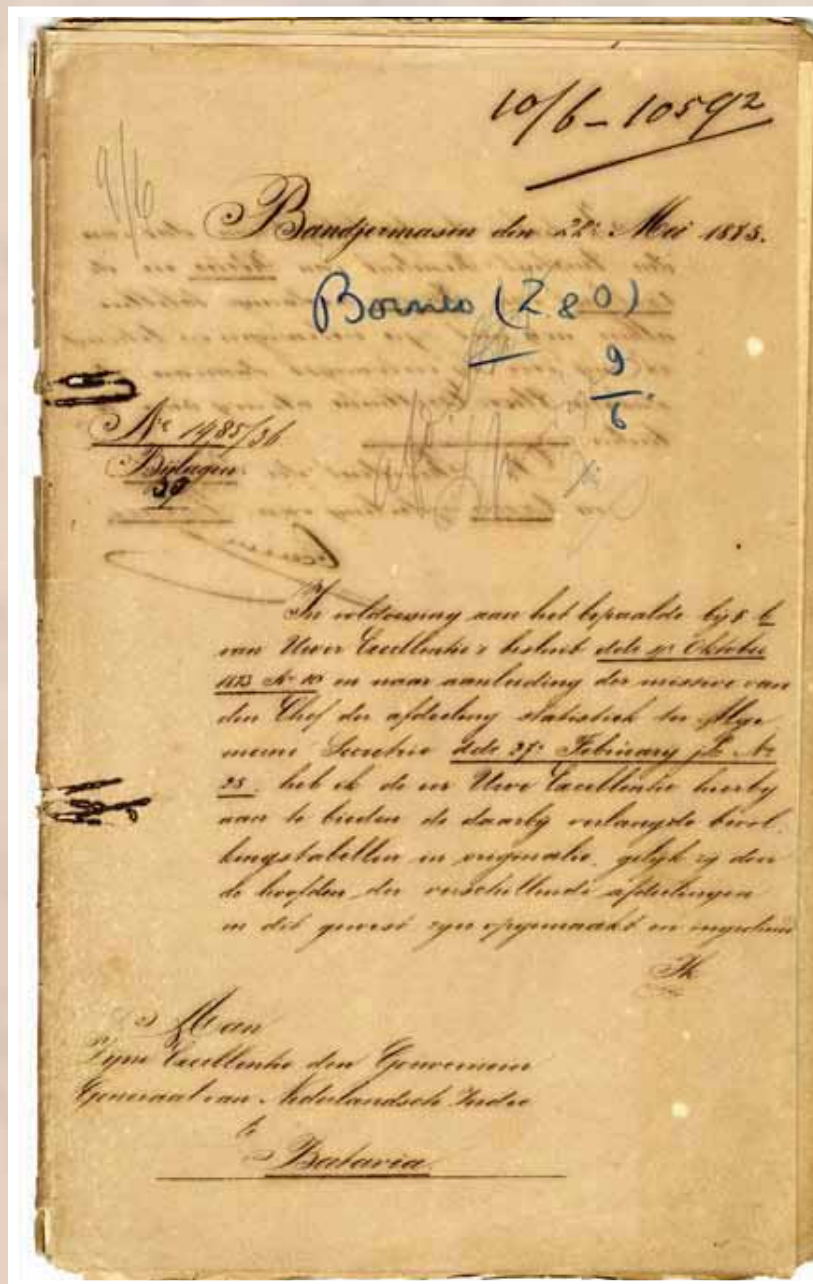 10/6 - 10592
9/6
Bandjermasin den 22e Mei 1875.
Borneo (Z & O)
9
6
No 1985/36
Bijlagen
In voldoening aan het bepaalde bij §
van Uwer Excellentie's besluit ddo Oktober
1873 No 10 en naar aanleiding der missive van
den Chef der afdeeling statistiek ter Alge
meene Secretarie ddo 27e February jl. No
heb ik de eer Uwe Excellentie hierbij
aan te bieden de daarbij verlangde bevol
kingstabellen in originatie, gelijk zij door
de hoofden der verschillende afdeelingen
in dit gewest zijn opgemaakt en ingediend
Ik
Aan
Zijne Excellentie den Gouverneur
Generaal van Nederlandsch Indie
te
Batavia.